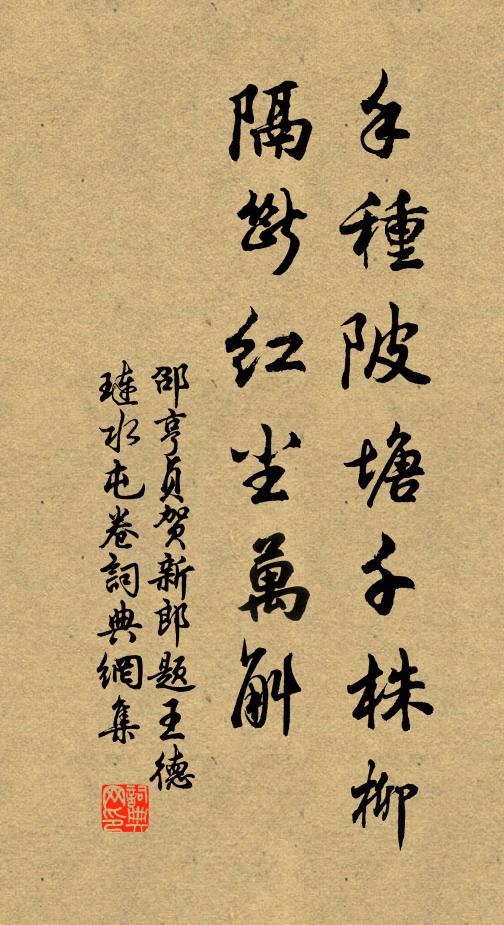 手種陂塘千株柳
隔斷紅塵萬斛
邵亨貞賀新郎題王德
璉水屯卷詞典網集
詞典
网印